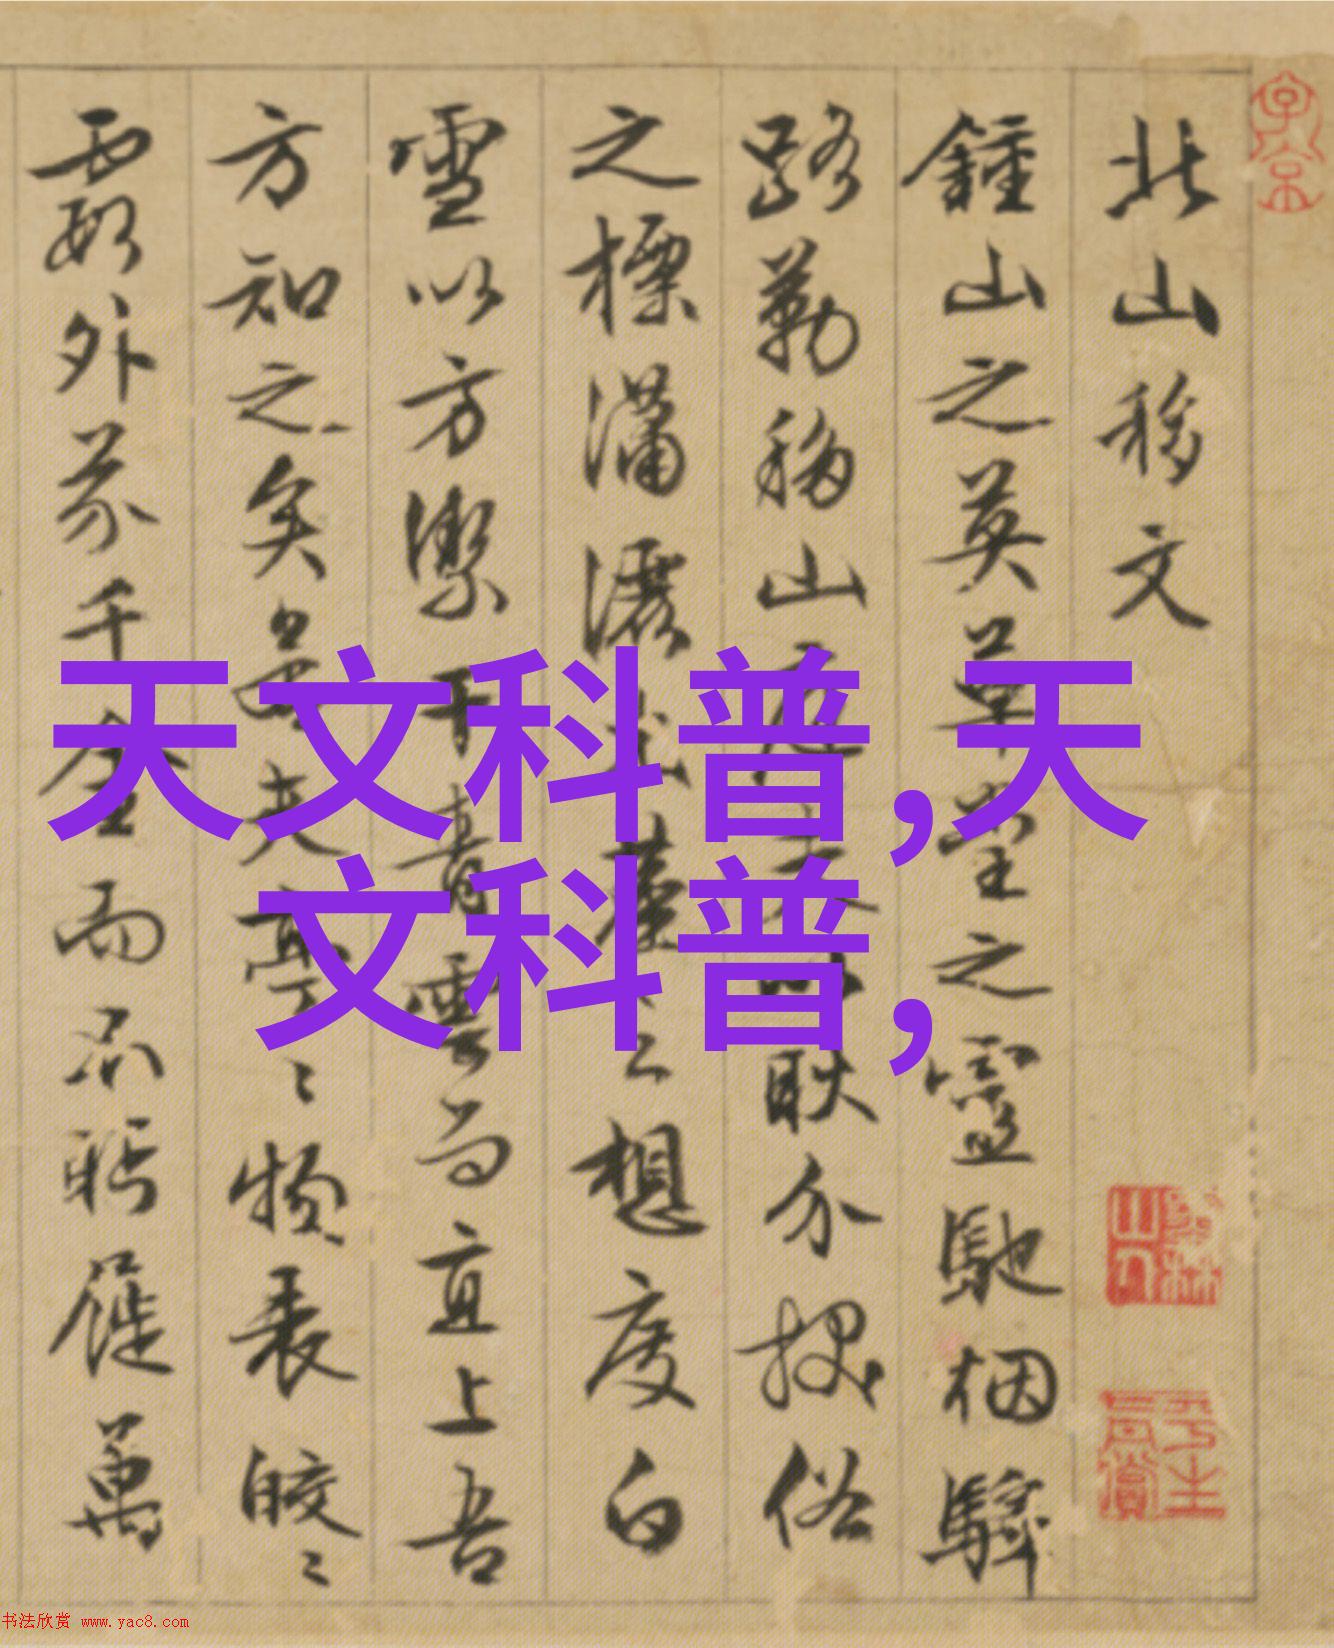 天文科普,天
文科普,
北山移文
鍾山之英草堂之靈馳烟驛
路勒移山庭夫以耿介拔俗
之標瀟灑出塵之想度白
雪以方潔干青雲而直上吾
方知之矣若夫亭〻物表皎〻
霞外芥千金而不眄屣萬
子京
书法欣赏 www.yac8.com